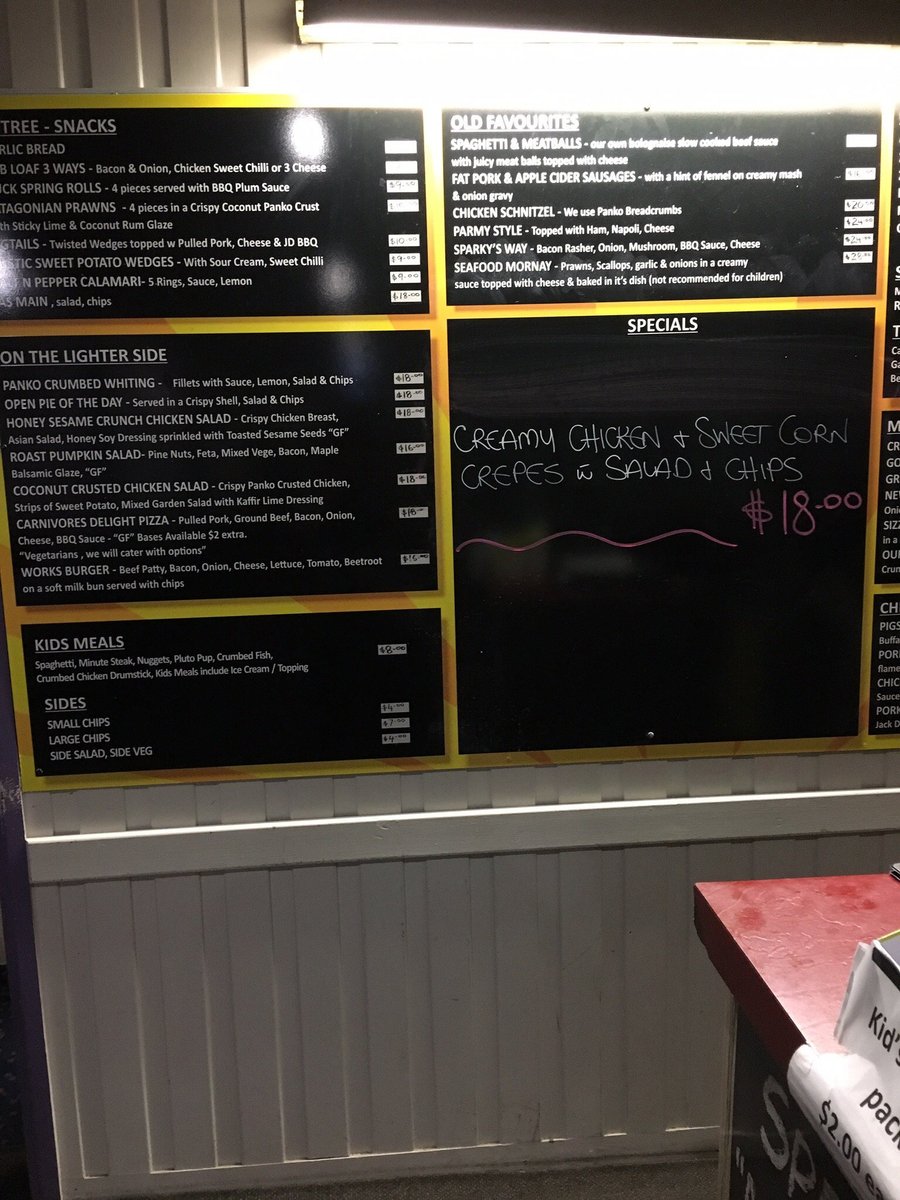 TREE - SNACKS
RLIC BREAD
B LOAF 3 WAYS - Bacon & Onion, Chicken Sweet Chilli or 3 Cheese
CK SPRING ROLLS - 4 pieces served with BBQ Plum Sauce $9.00
TAGONIAN PRAWNS - 4 pieces in a Crispy Coconut Panko Crust
th Sticky Lime & Coconut Rum Glaze
GTAILS - Twisted Wedges topped w Pulled Pork, Cheese & JD BBQ $10.00
STIC SWEET POTATO WEDGES - With Sour Cream, Sweet Chilli $9.00
N PEPPER CALAMARI- 5 Rings, Sauce, Lemon $9.00
AS MAIN , salad, chips $18.00
ON THE LIGHTER SIDE
PANKO CRUMBED WHITING - Fillets with Sauce, Lemon, Salad & Chips $18.00
OPEN PIE OF THE DAY - Served in a Crispy Shell, Salad & Chips $18.00
HONEY SESAME CRUNCH CHICKEN SALAD - Crispy Chicken Breast, $18.00
Asian Salad, Honey Soy Dressing sprinkled with Toasted Sesame Seeds “GF”
ROAST PUMPKIN SALAD- Pine Nuts, Feta, Mixed Vege, Bacon, Maple $16.00
Balsamic Glaze, “GF”
COCONUT CRUSTED CHICKEN SALAD - Crispy Panko Crusted Chicken, $18.00
Strips of Sweet Potato, Mixed Garden Salad with Kaffir Lime Dressing
CARNIVORES DELIGHT PIZZA - Pulled Pork, Ground Beef, Bacon, Onion, $18
Cheese, BBQ Sauce - “GF” Bases Available $2 extra.
“Vegetarians , we will cater with options”
WORKS BURGER - Beef Patty, Bacon, Onion, Cheese, Lettuce, Tomato, Beetroot
on a soft milk bun served with chips
KIDS MEALS
Spaghetti, Minute Steak, Nuggets, Pluto Pup, Crumbed Fish, $8.00
Crumbed Chicken Drumstick, Kids Meals include Ice Cream / Topping
SIDES
SMALL CHIPS $4.00
LARGE CHIPS $7.00
SIDE SALAD, SIDE VEG $4.00
OLD FAVOURITES
SPAGHETTI & MEATBALLS - our own bolognaise slow cooked beef sauce
with juicy meat balls topped with cheese
FAT PORK & APPLE CIDER SAUSAGES - with a hint of fennel on creamy mash
& onion gravy
CHICKEN SCHNITZEL - We use Panko Breadcrumbs $20.00
PARMY STYLE - Topped with Ham, Napoli, Cheese $24.00
SPARKY'S WAY - Bacon Rasher, Onion, Mushroom, BBQ Sauce, Cheese $24.00
SEAFOOD MORNAY - Prawns, Scallops, garlic & onions in a creamy
sauce topped with cheese & baked in it's dish (not recommended for children)
SPECIALS
CREAMY CHICKEN & SWEET CORN
CREPES w SALAD & CHIPS
$18.00
Kid's
pack
$2.00 ea
SP